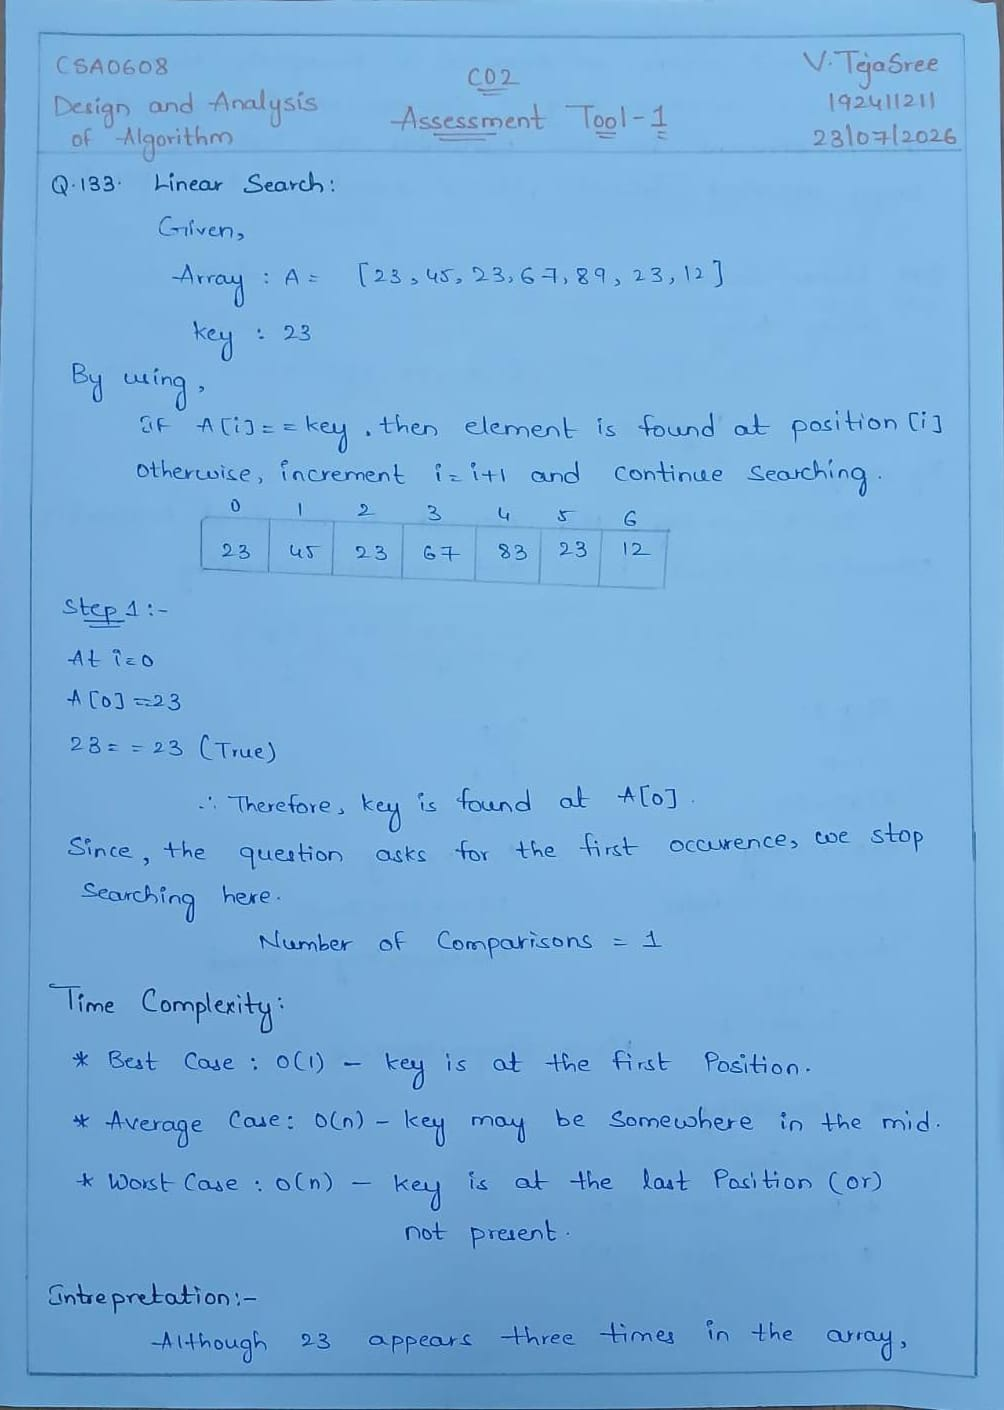 CSA0608
Design and Analysis
of Algorithm
CO2
Assessment Tool-1
V. TejaSree
192411211
23/07/2026
Q.133. Linear Search:
Given,
Array : A = [23, 45, 23, 67, 89, 23, 12]
key : 23
By using,
If A[i] == key, then element is found at position [i]
otherwise, increment i=i+1 and continue searching.
0 1 2 3 4 5 6
23 45 23 67 83 23 12
Step 1:-
At i=0
A[0] =23
23 == 23 (True)
∴ Therefore, key is found at A[0].
Since, the question asks for the first occurence, we stop
Searching here.
Number of Comparisons = 1
Time Complexity:
* Best Case : O(1) - key is at the first Position.
* Average Case: O(n) - key may be Somewhere in the mid.
* Worst Case : O(n) - key is at the last Position (or)
not present.
Intrepretation:-
Although 23 appears three times in the array,